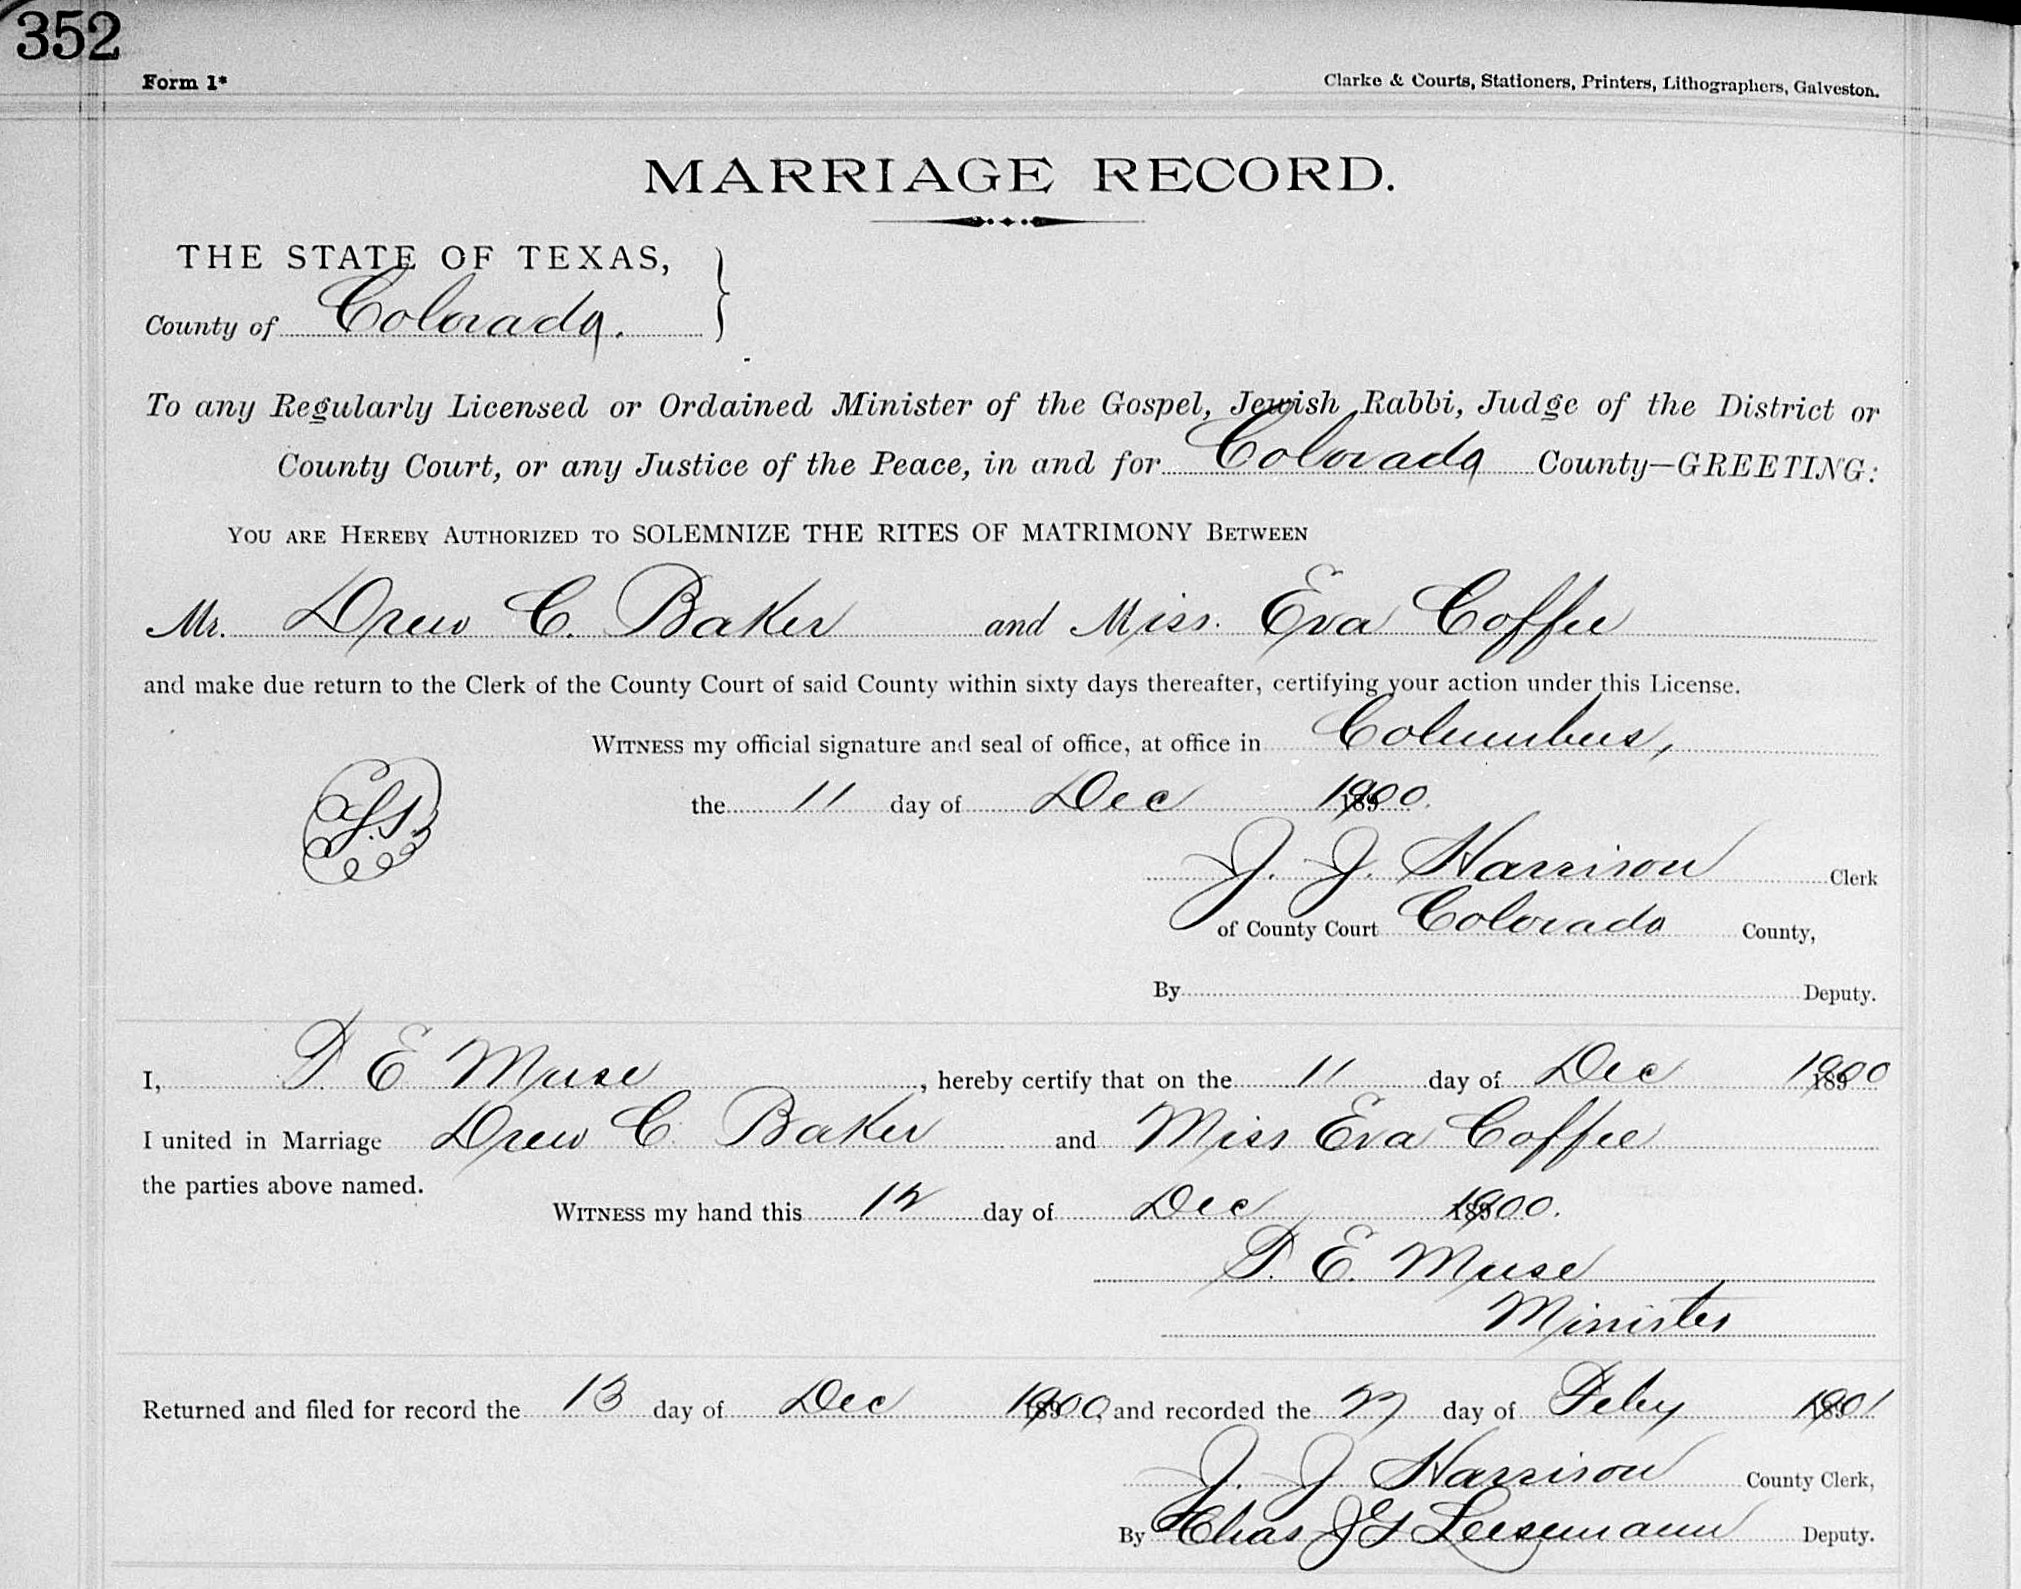 352
Form 1*
Clarke & Courts, Stationers, Printers, Lithographers, Galveston.
MARRIAGE RECORD.
THE STATE OF TEXAS,
County of Colorado.
To any Regularly Licensed or Ordained Minister of the Gospel, Jewish Rabbi, Judge of the District or
County Court, or any Justice of the Peace, in and for Colorado County—GREETING:
YOU ARE HEREBY AUTHORIZED TO SOLEMNIZE THE RITES OF MATRIMONY BETWEEN
Mr. Drew C. Baker and Miss. Eva Coffee
and make due return to the Clerk of the County Court of said County within sixty days thereafter, certifying your action under this License.
WITNESS my official signature and seal of office, at office in Columbus,
the 11 day of Dec 1900.
L.S.
J. J. Harrison Clerk
of County Court Colorado County,
By Deputy.
I, T. E Muse, hereby certify that on the 11 day of Dec 1900
I united in Marriage Drew C. Baker and Miss Eva Coffee
the parties above named.
WITNESS my hand this 12 day of Dec 1900.
T. E. Muse
Minister
Returned and filed for record the 13 day of Dec 1900, and recorded the day of Feby 1901
J. J. Harrison County Clerk,
By Chas Leesemann Deputy.